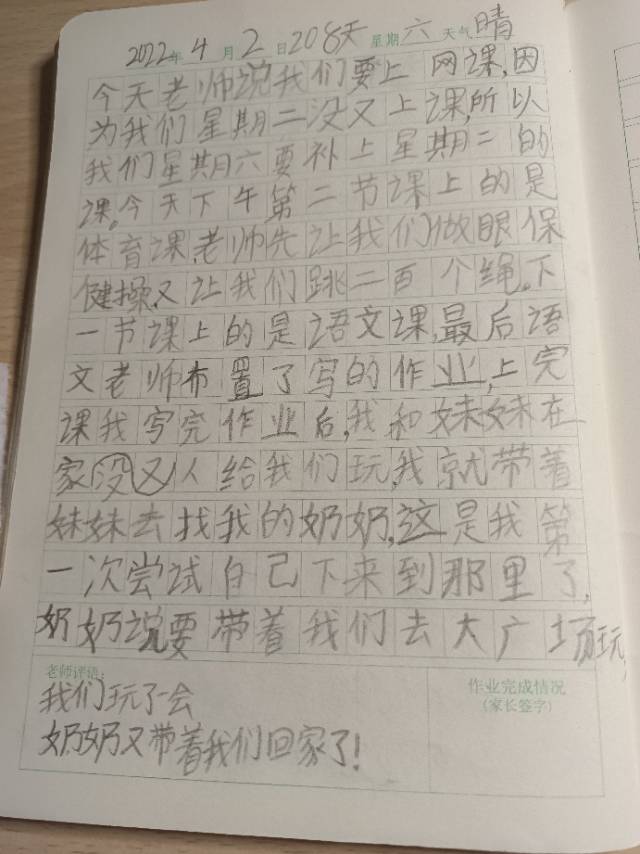 2022年4月2日208天 星期六 天气晴
今天老师说我们要上网课,因
为我们星期二没又上课,所以
我们星期六要补上星期二的
课。今天下午第二节课上的是
体育课,老师先让我们做眼保
健操,又让我们跳二百个绳。下
一节课上的是语文课,最后语
文老师布置了写的作业,上完
课我写完作业后,我和妹妹在
家没又人给我们玩,我就带着
妹妹去找我的奶奶,这是我第
一次尝试自己下来到那里了,
奶奶说要带着我们去大广场玩,
老师评语:
我们玩了一会
奶奶又带着我们回家了!
作业完成情况
(家长签字)